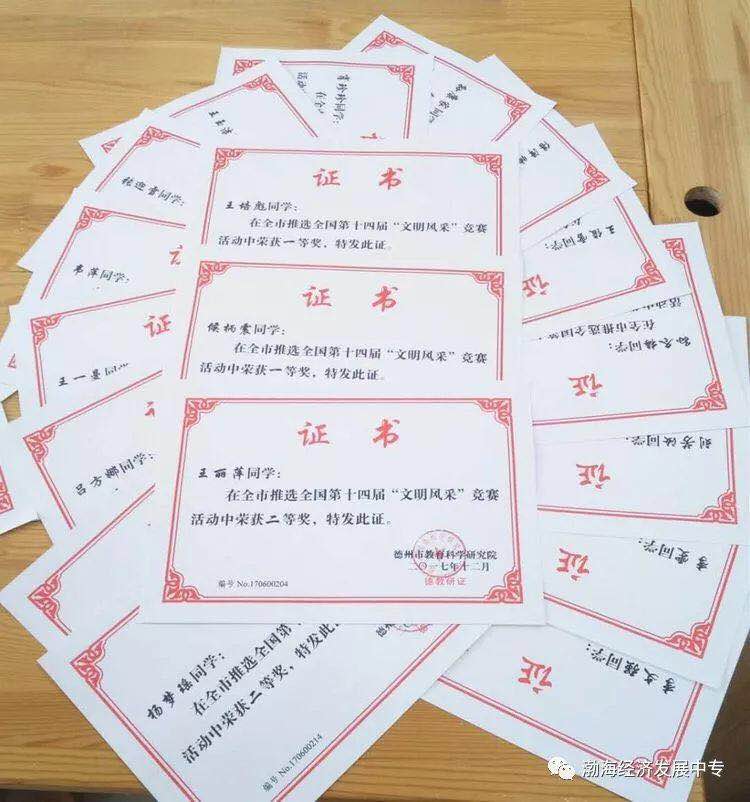 证书
王培彪同学：
在全市推选全国第十四届“文明风采”竞赛
活动中荣获一等奖，特发此证。
证书
候栃震同学：
在全市推选全国第十四届“文明风采”竞赛
活动中荣获一等奖，特发此证。
证书
王丽萍同学：
在全市推选全国第十四届“文明风采”竞赛
活动中荣获二等奖，特发此证。
德州市教育科学研究院
二〇一七年十二月
德教研证
编号 No.170600204
张迎雪同学
韦萍同学：
王一曼同学
吕方娜同学：
杨梦瑶同学：
在全市推选全国第十
活动中荣获二等奖，特发此证
编号 No.170600214
同学：
活动中
在全
王俊雪同学：
同学：
在全市推选全国第
活动中
证
同学：
证
李雯同学：
证
李文强同学：
证
渤海经济发展中专